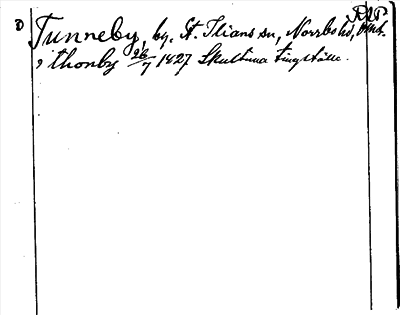 D Tunneby, by. St. Ilians sn, Norrbo hd,
thonby 26/7 1427 Skultuna tingställe.